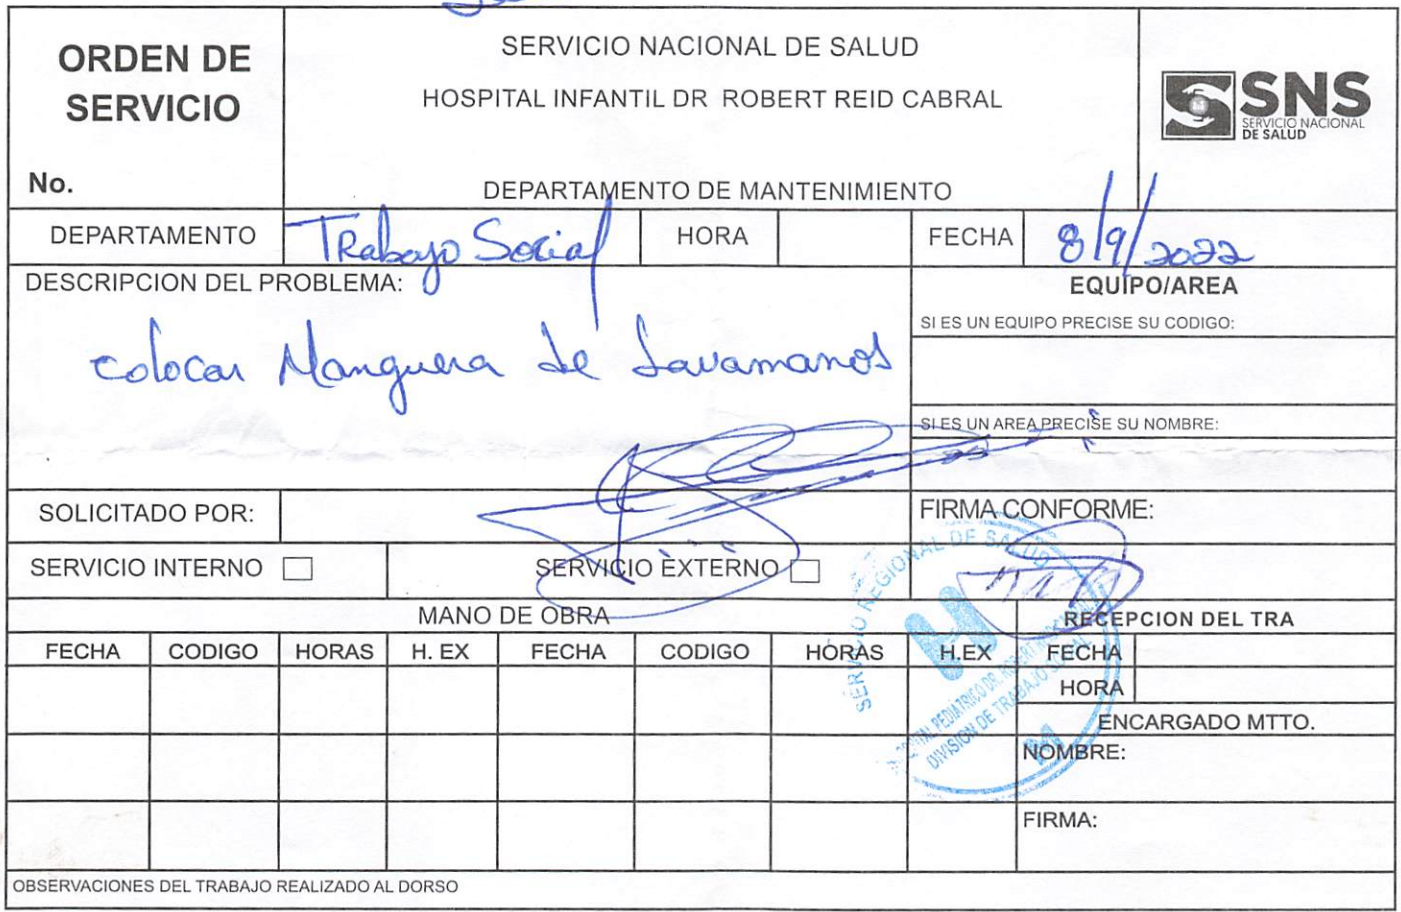 ORDEN DE
SERVICIO
No.
SERVICIO NACIONAL DE SALUD
HOSPITAL INFANTIL DR ROBERT REID CABRAL
DEPARTAMENTO DE MANTENIMIENTO
SNS
SERVICIO NACIONAL
DE SALUD
DEPARTAMENTO Trabajo Social HORA FECHA 8/9/2022
DESCRIPCION DEL PROBLEMA:
Colocar Manguera de Lavamanos
EQUIPO/AREA
SI ES UN EQUIPO PRECISE SU CODIGO:
SI ES UN AREA PRECISE SU NOMBRE:
SOLICITADO POR:
FIRMA CONFORME:
SERVICIO INTERNO SERVICIO EXTERNO
SERVICIO REGIONAL DE SALUD
H
DIVISION DE TRABAJO SOCIAL
MANO DE OBRA
RECEPCION DEL TRA
FECHA CODIGO HORAS H. EX FECHA CODIGO HORAS H.EX FECHA
HORA
ENCARGADO MTTO.
NOMBRE:
FIRMA:
OBSERVACIONES DEL TRABAJO REALIZADO AL DORSO